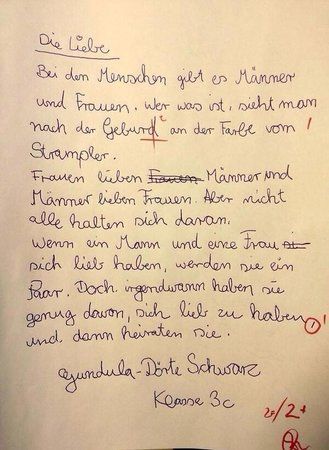 Die Liebe
Bei den Menschen gibt es Männer
und Frauen. Wer was ist, sieht man
nach der Geburd an der Farbe vom
Strampler.
Frauen lieben Frauen Männer und
Männer lieben Frauen. Aber nicht
alle halten sich daran.
Wenn ein Mann und eine Frau
sich lieb haben, werden sie ein
Paar. Doch irgendwann haben sie
genug davon, sich lieb zu haben
und dann heiraten sie.
Gundula-Dörte Schwarz
Klasse 3c
2+